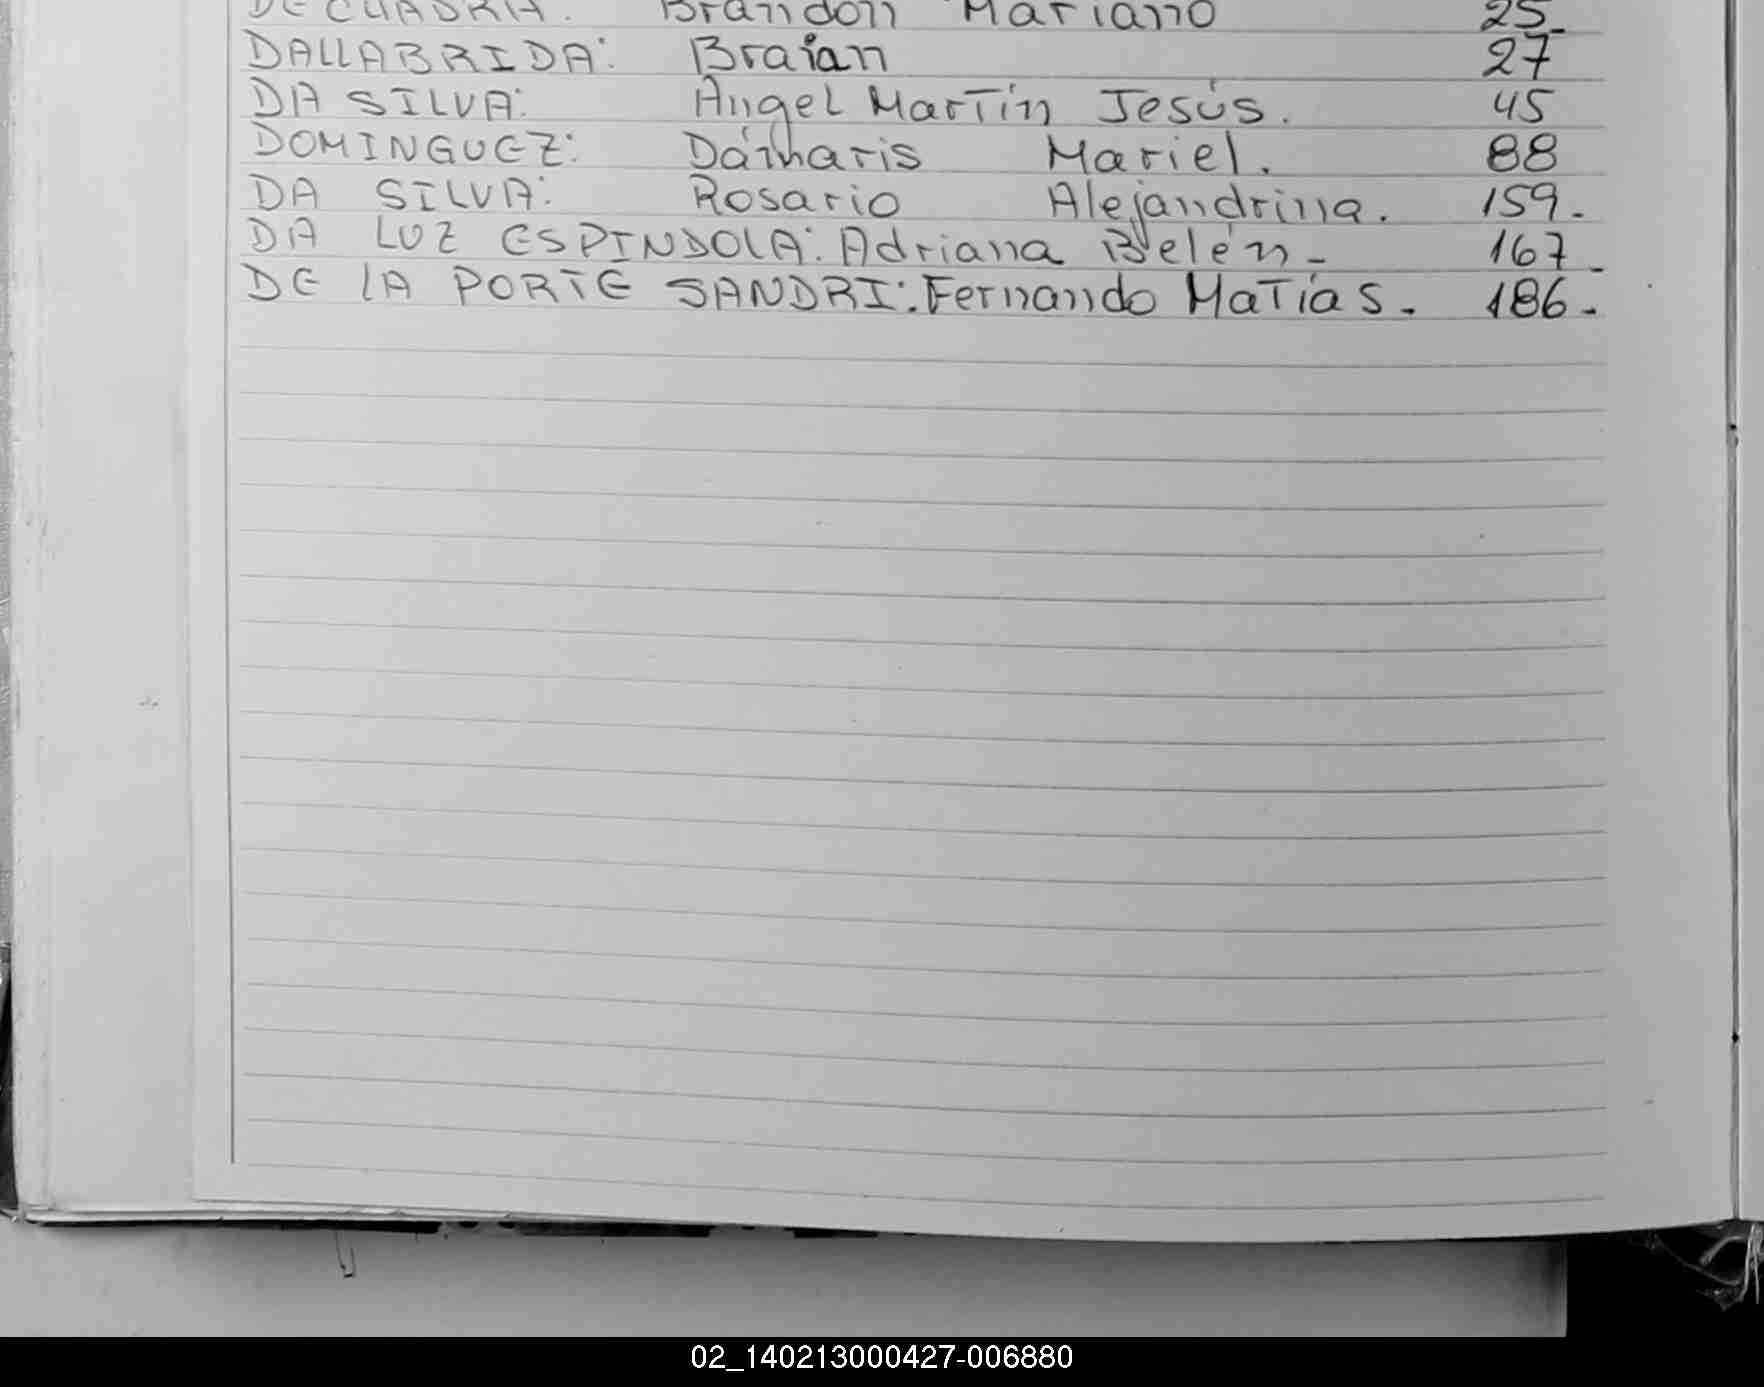 DE CUADRA: Brandon Mariano 25_
DALLABRIDA: Braian 27
DA SILVA: Angel Martín Jesús. 45
DOMINGUEZ: Dámaris Mariel. 88
DA SILVA: Rosario Alejandrina. 159.-
DA LUZ ESPINDOLA: Adriana Belén- 167_
DE LA PORTE SANDRI: Fernando Matías. 186.-
02_140213000427-006880